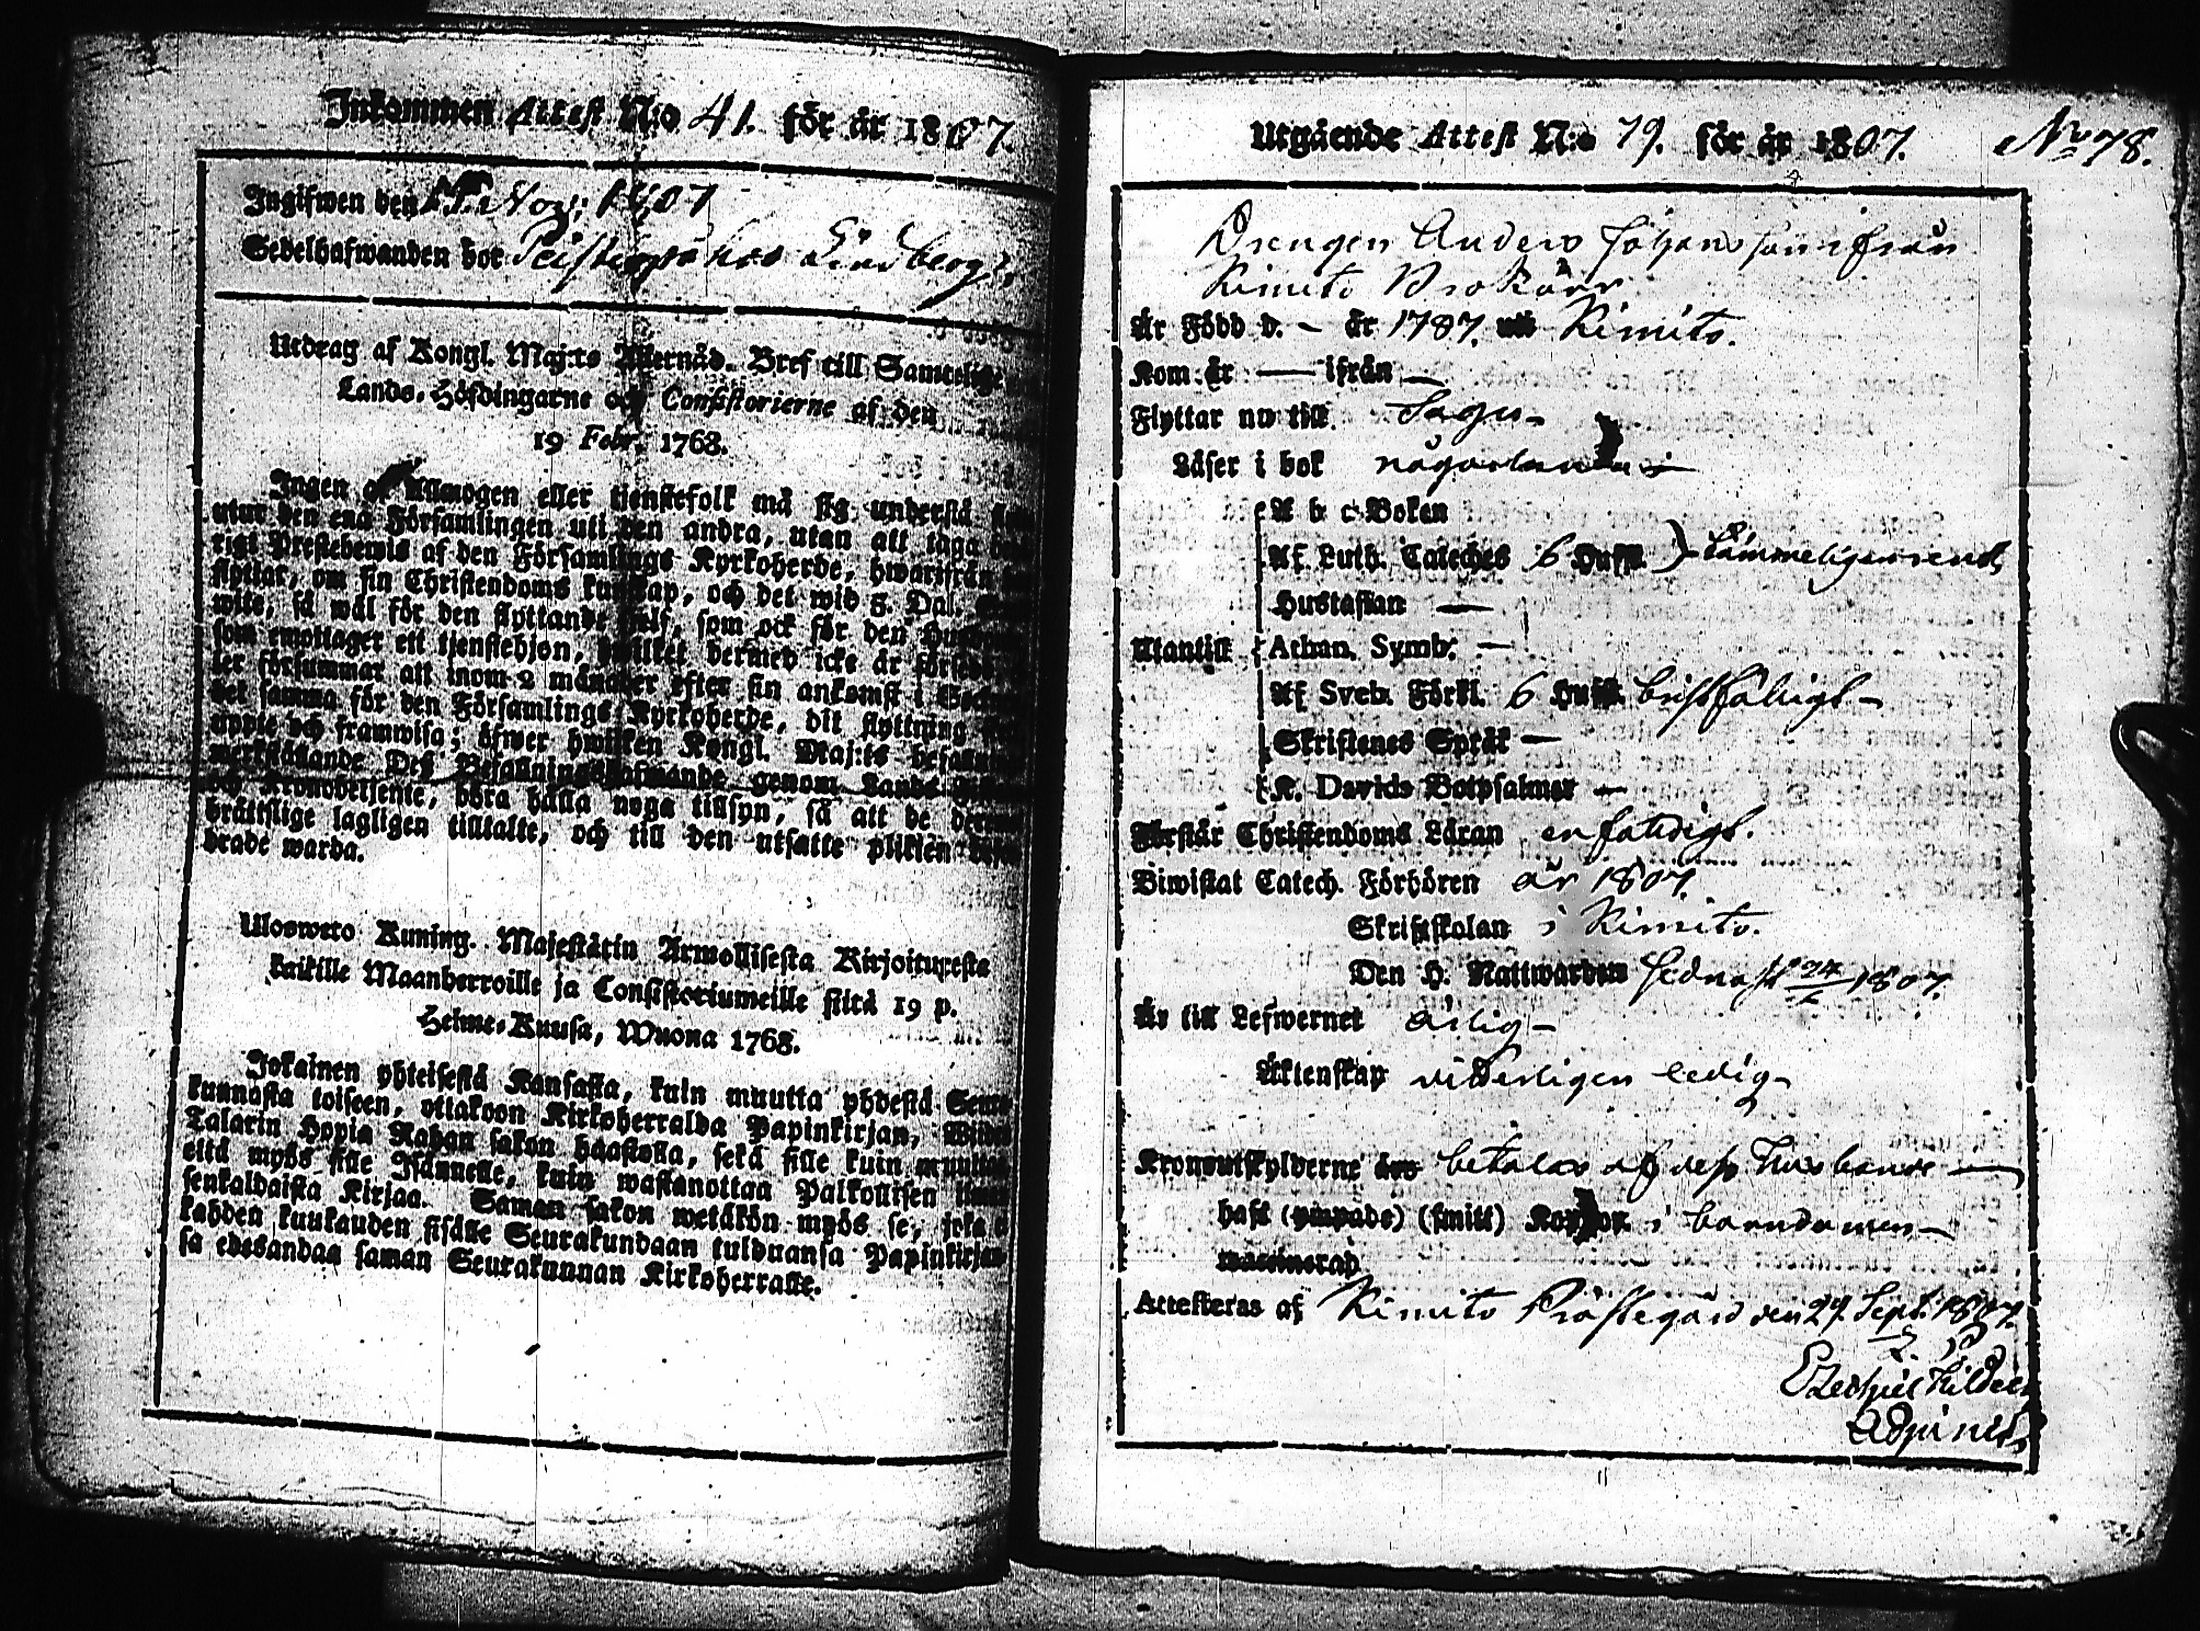 Inkommen Attest N:o 41. för år 1807.
Ingifwen den Nov: 1807
Sedelhafwanden bor hos Lindberg
Utdrag af Kongl. Maj:ts Allernåd. Bref till Samtelige
Lands-Höfdingarne och Consistorierne af den
19 Febr. 1768.
Ingen af Allmogen eller tjenstefolk må sig understå
utur den ena Församlingen uti den andra, utan att taga
Prestebewis af den Församlings Kyrkoherde, hwarifrån
flyttar, om sin Christendoms kunskap, och det wid 5. Dal.
wite, så wäl för den flyttande sielf, som ock för den
som emottager ett tjenstehjon, hwilket dermed icke är
försummar att inom 2 månader efter sin ankomst i
det samma för den Församlings Kyrkoherde, dit flyttning
uppte och framwisa; öfwer hwilken Kongl. Maj:ts
werkställande Deß Befallningshafwande genom Lands
och Kronobetjente, böra hålla noga tillsyn, så att de
brättslige lagligen tilltalte, och till den utsatte plikten
brade warda.
Ulosweto Kuning. Majestätin Armollisesta Kirjoituxesta
kaikille Maanherroille ja Consistoriumeille siitä 19 p.
Helme-Kuusa, Wuona 1768.
Jokainen yhteisestä Kansasta, kuin muutta yhdestä
kunnasta toiseen, ottakoon Kirkoherralda Papinkirjan,
Talarin Hopia Rahan sakon haastolla, sekä sille kuin
että myös sille Isännelle, kuin wastanottaa Palkollisen
senkaldaista Kirjaa. Saman sakon wetäkön myös se, joka
kahden kuukauden sisälle Seurakundaan tulduansa Papinkirjan
sa edesandaa saman Seurakunnan Kirkoherralle.
Utgående Attest N:o 79. för år 1807. No 78.
Drengen Anders Johansson ifrån
Kimito
Är Född d. – år 1787. uti Kimito.
Kom år — ifrån —
Flyttar nu till Sagu –
Läser i bok någorlunda
A b c Boken
Af Luth. Cateches 6 Huffst. }
Hustaflan —
Utantill { Athan. Symb. —
Af Sveb. Förkl. 6 Huffst. bristfälligt –
Skriftenes Språk —
K. Davids Botpsalmer —
Förstår Christendoms Läran enfaldigt.
Biwistat Catech. Förhören år 1807.
Skriftskolan i Kimito.
Den H. Nattwarden sednast 1807.
Är till Lefwernet ärlig –
Äktenskap witterligen ledig –
Kronoutskylderne äro betalas af deß Husbonde —
haft (ympade) (smitt) Koppor. i barndomen –
waccinerad
Attesteras af Kimito Prästegård den 29 Sept. 1807.
Ezechiel
Adjunct